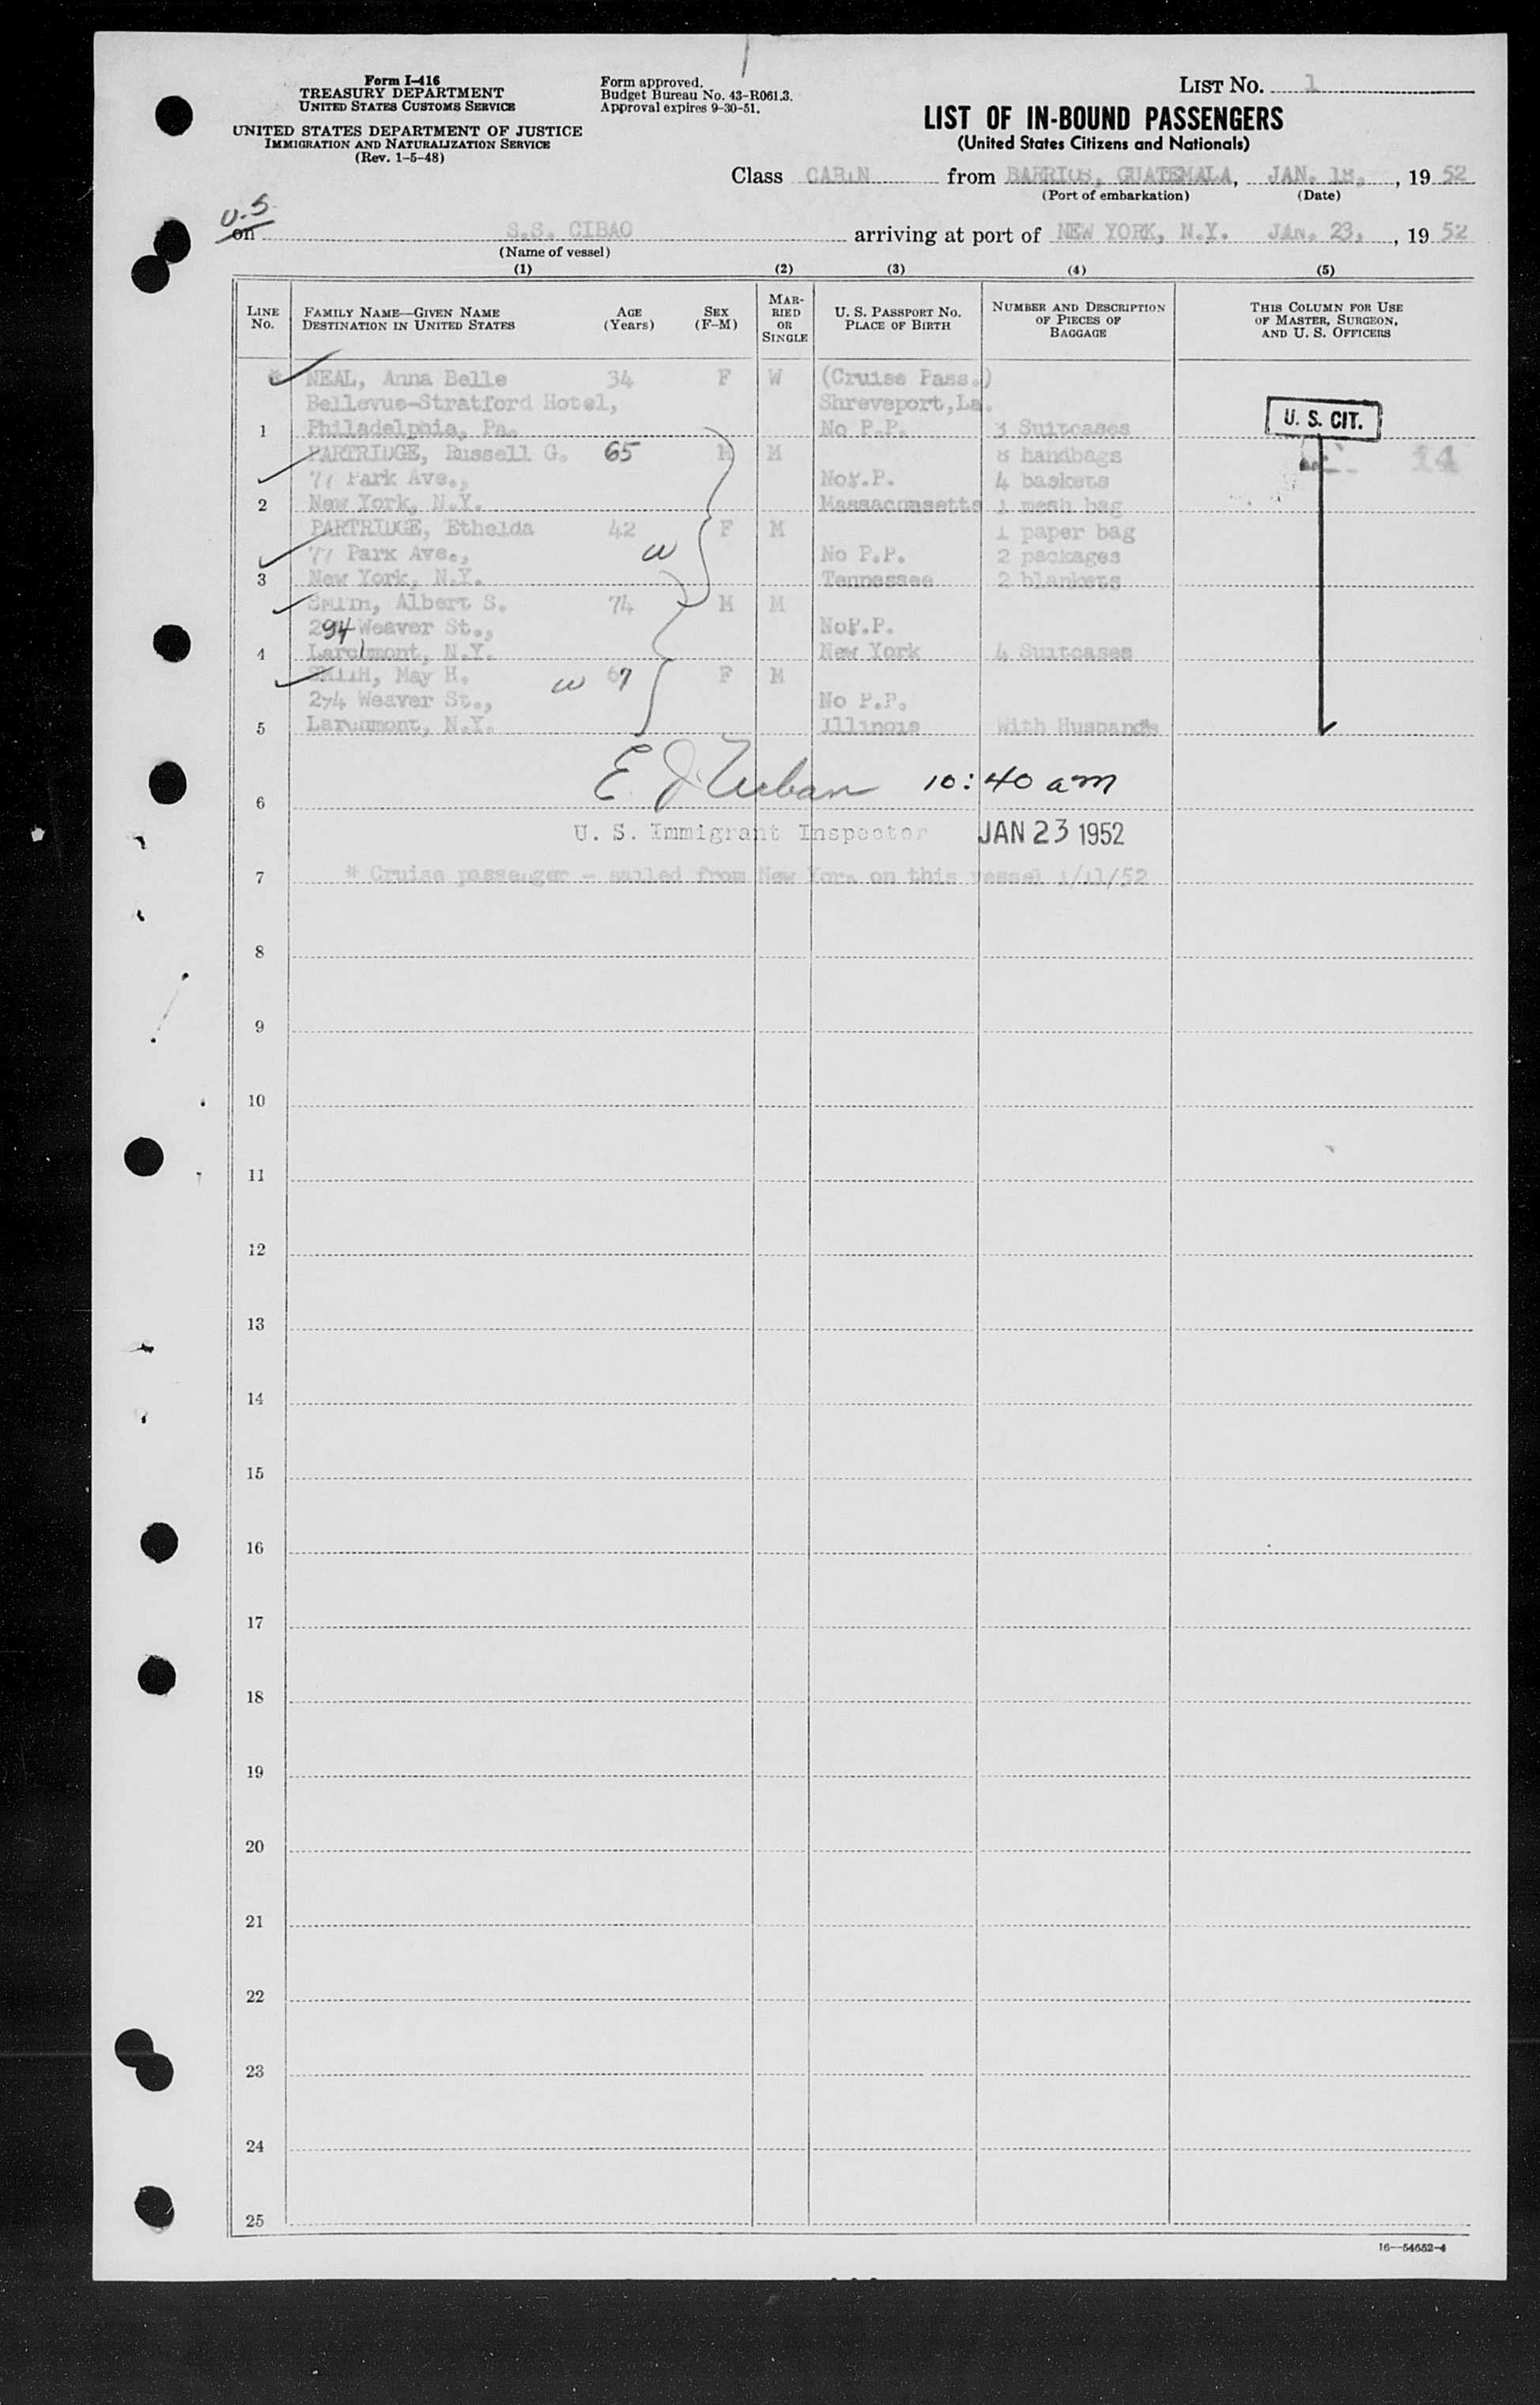 Form I-416
TREASURY DEPARTMENT
UNITED STATES CUSTOMS SERVICE
UNITED STATES DEPARTMENT OF JUSTICE
IMMIGRATION AND NATURALIZATION SERVICE
(Rev. 1-5-48)
Form approved.
Budget Bureau No. 43-R061.3.
Approval expires 9-30-51.
LIST NO. 1
LIST OF IN-BOUND PASSENGERS
(United States Citizens and Nationals)
Class CABIN from BARRIOS, GUATEMALA, JAN. 18, , 19 52
(Port of embarkation) (Date)
U.S
on S.S. CIBAO arriving at port of NEW YORK, N.Y. JAN. 23, , 19 52
(Name of vessel)
(1) (2) (3) (4) (5)
LINE NO.
FAMILY NAME—GIVEN NAME
DESTINATION IN UNITED STATES
AGE
(Years)
SEX
(F-M)
MAR-
RIED
OR
SINGLE
U. S. PASSPORT NO.
PLACE OF BIRTH
NUMBER AND DESCRIPTION
OF PIECES OF
BAGGAGE
THIS COLUMN FOR USE
OF MASTER, SURGEON,
AND U. S. OFFICERS
* NEAL, Anna Belle 34 F W (Cruise Pass.)
Bellevue-Stratford Hotel, Shreveport,La.
1 Philadelphia, Pa. No P.P. 3 Suitcases
U. S. CIT.
PARTRIDGE, Russell G. 65 M M 8 handbags 14
77 Park Ave., No P.P. 4 baskets
2 New York, N.Y. Massachusetts 1 mesh bag
PARTRIDGE, Ethelda 42 F M 1 paper bag
77 Park Ave., W No P.P. 2 packages
3 New York, N.Y. Tennessee 2 blankets
SMITH, Albert S. 74 M M
294 Weaver St., No P.P.
4 Larchmont, N.Y. New York 4 Suitcases
SMITH, May H. W 67 F M
294 Weaver St., No P.P.
5 Larchmont, N.Y. Illinois With Husband's
E J 10:40 am
6
U. S. Immigrant Inspector JAN 23 1952
7 * Cruise passenger - sailed from New York on this vessel 1/11/52
8
9
10
11
12
13
14
15
16
17
18
19
20
21
22
23
24
25
16—54652-4